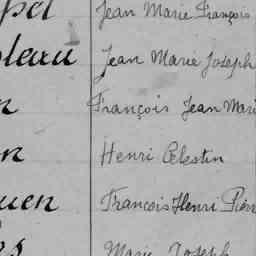 pel Jean Marie François
leau Jean Marie Joseph
n François Jean Mari
n Henri Célestin
uen François Henri Pierr
es Marie Joseph